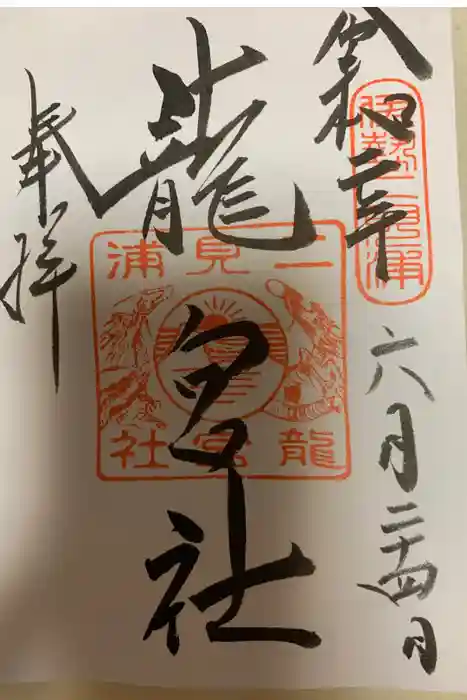 令和二年
六月二十四日
伊勢二見浦
龍宮社
二見浦
龍宮社
奉拝